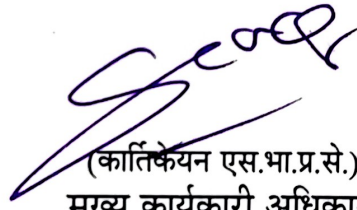 (कार्तिकेयन एस.भा.प्र.से.)
मुख्य कार्यकारी अधिकारी